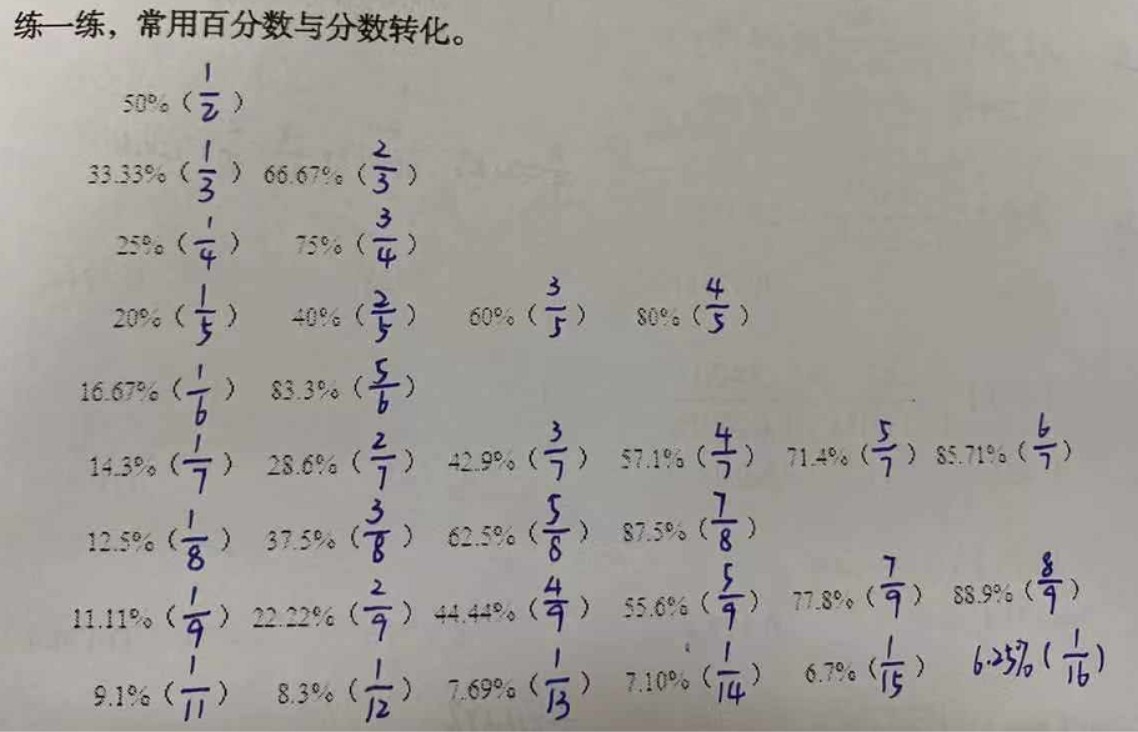 练一练，常用百分数与分数转化。
50%（1/2）
33.33%（1/3） 66.67%（2/3）
25%（1/4） 75%（3/4）
20%（1/5） 40%（2/5） 60%（3/5） 80%（4/5）
16.67%（1/6） 83.3%（5/6）
14.3%（1/7） 28.6%（2/7） 42.9%（3/7） 57.1%（4/7） 71.4%（5/7） 85.71%（6/7）
12.5%（1/8） 37.5%（3/8） 62.5%（5/8） 87.5%（7/8）
11.11%（1/9） 22.22%（2/9） 44.44%（4/9） 55.6%（5/9） 77.8%（7/9） 88.9%（8/9）
9.1%（1/11） 8.3%（1/12） 7.69%（1/13） 7.10%（1/14） 6.7%（1/15） 6.25%（1/16）